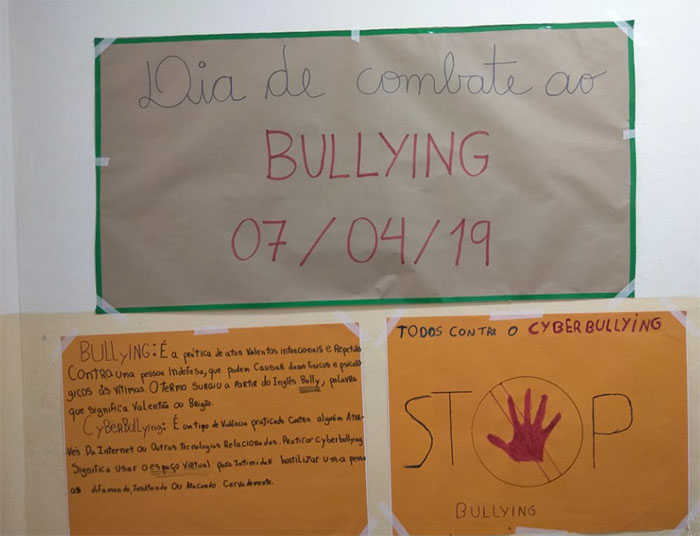 Dia de combate ao
BULLYING
07/04/19
BULLyING: É a prática de atos Valentos intencionais e Repetidos
CONTRA uma pessoa indefesa, que podem Causar danos físicos e psicoló-
gicos às vítimas. O termo surgiu a partir do Inglês Bully, palavra
que significa Valentão ou Brigão.
CyBERBullying: É um tipo de Violência praticada contra alguém Atra-
vés Da Internet ou Outras Tecnologias Relacionadas. Praticar Cyberbullying
Significa usar o espaço virtual para Intimidar hostilizar uma pesso
as difamando, Insultando OU
TODOS CONTRA O CYBERBULLYING
STOP
BULLYING